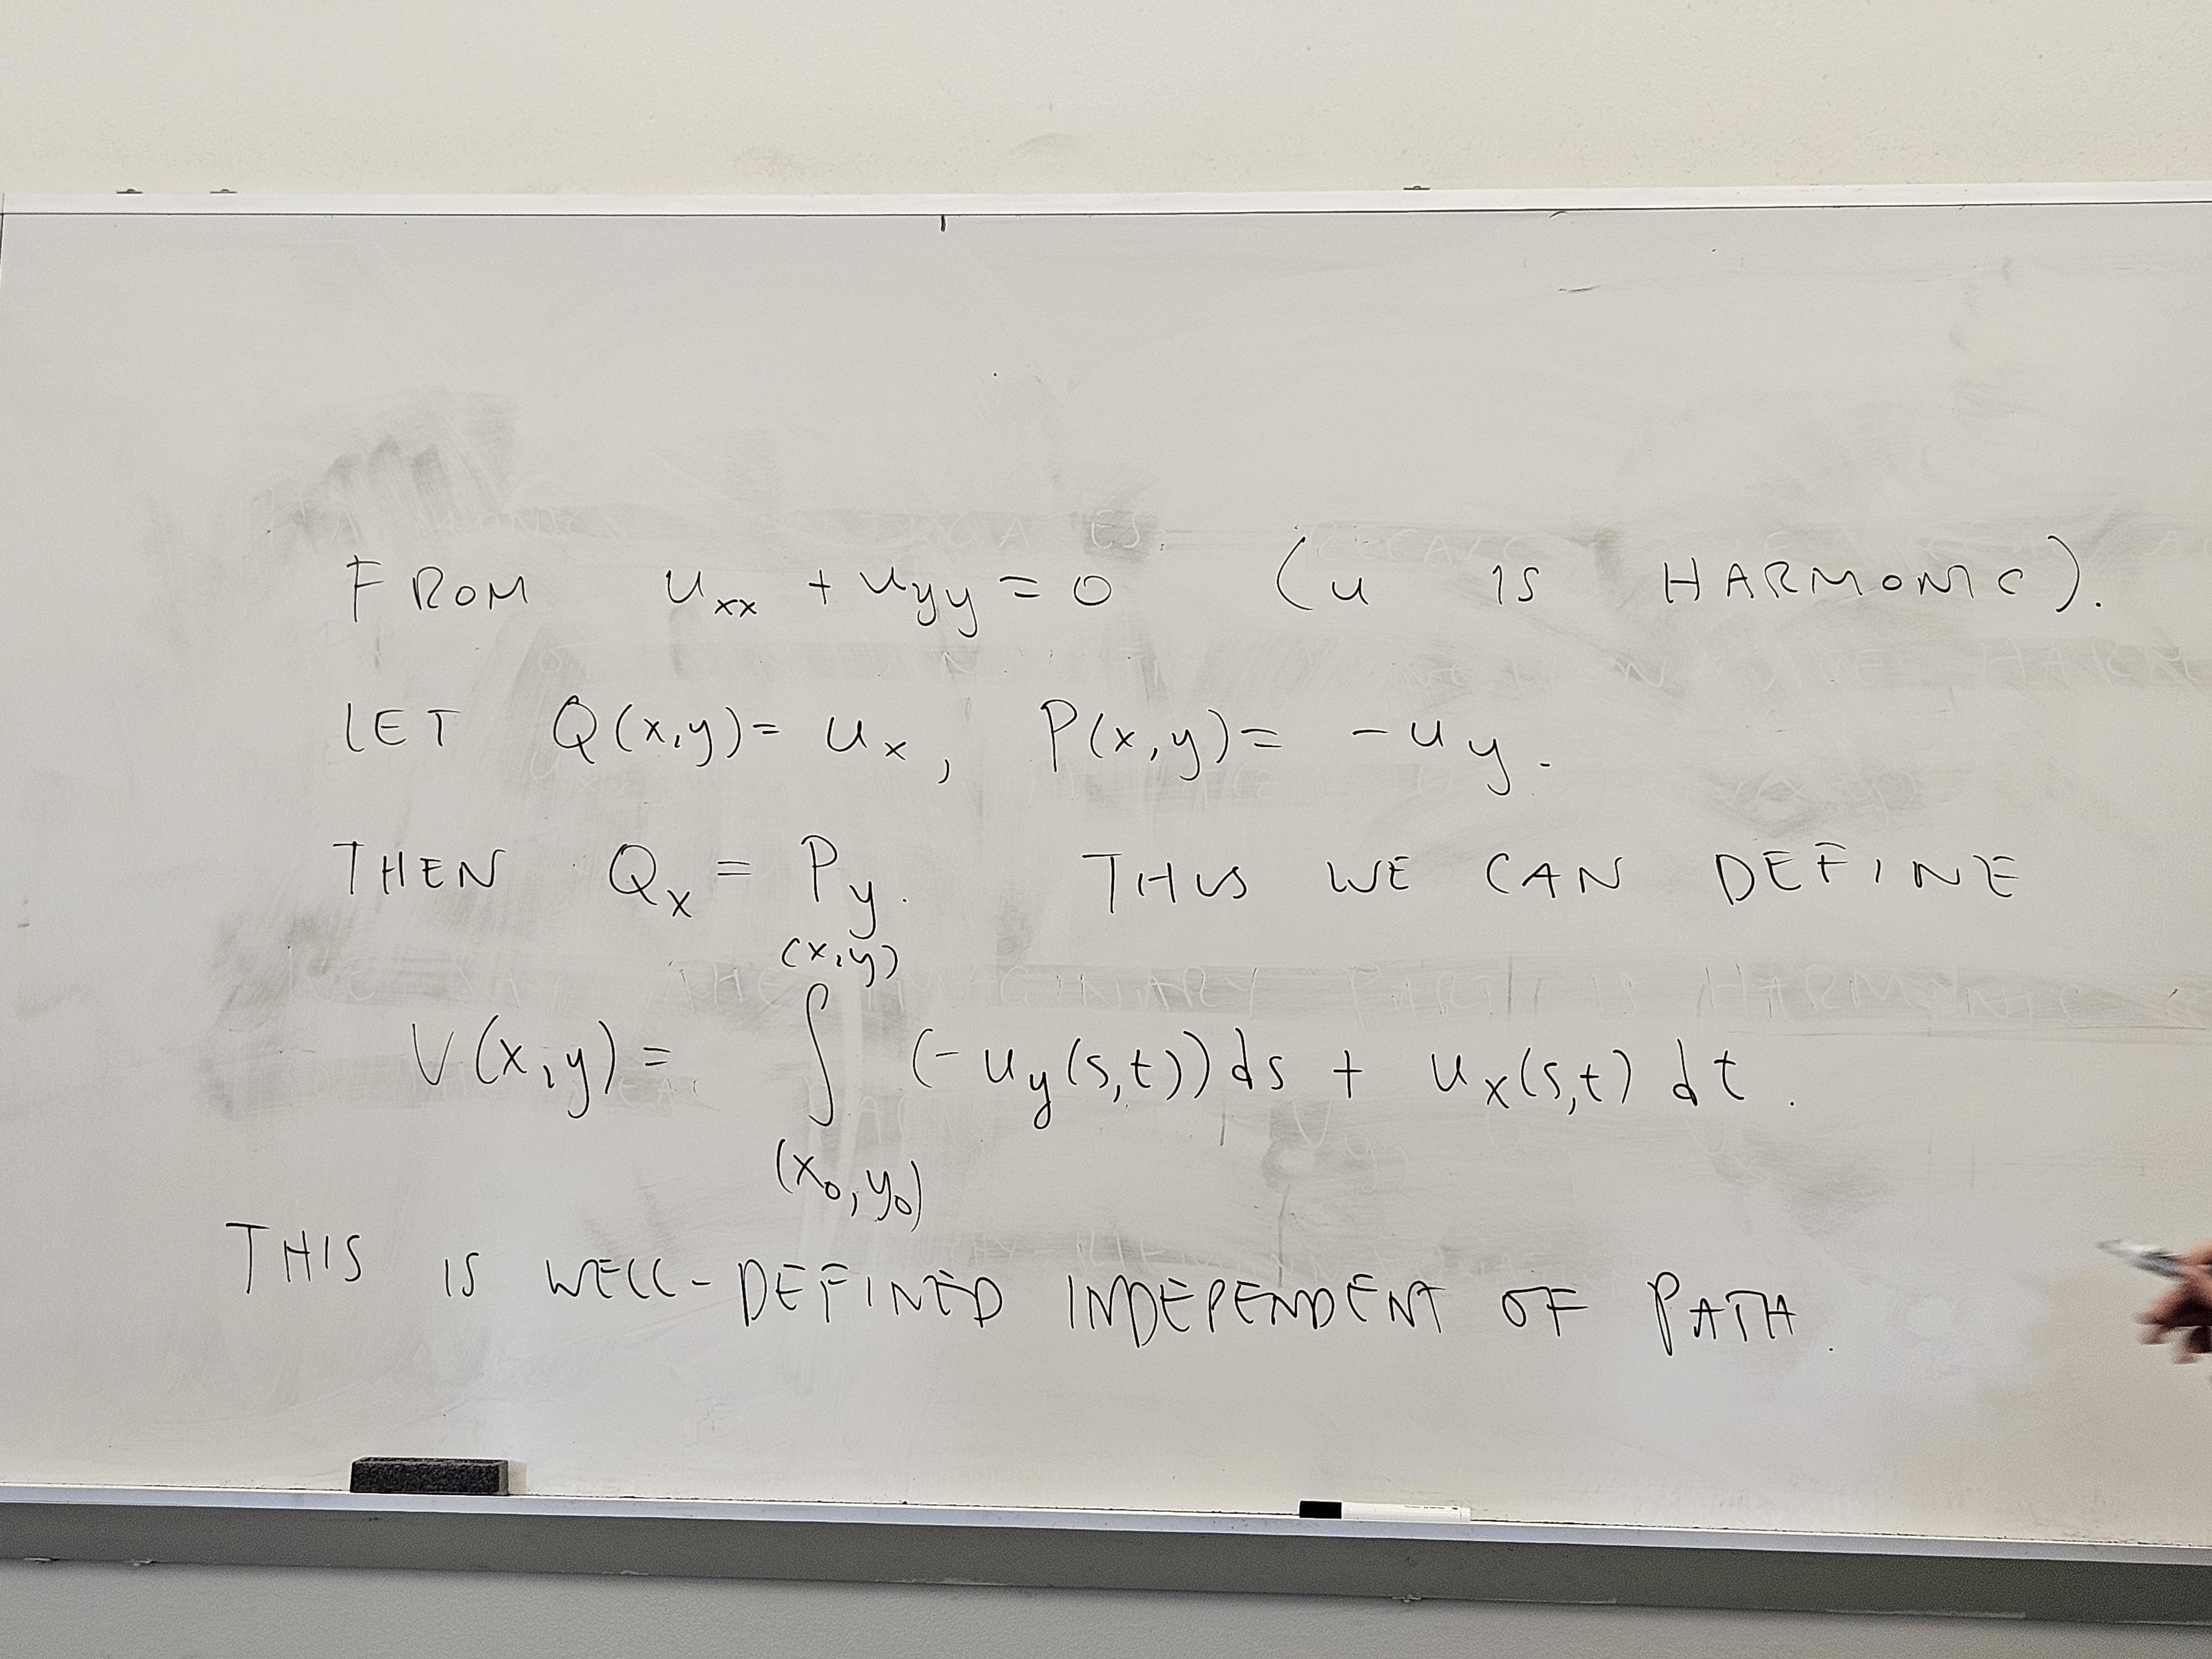 FROM u_xx + u_yy = 0 (u IS HARMONIC).
LET Q(x,y) = u_x, P(x,y) = -u_y.
THEN Q_x = P_y. THUS WE CAN DEFINE
V(x,y) = ∫_(x_0,y_0)^(x,y) (-u_y(s,t))ds + u_x(s,t) dt.
THIS IS WELL-DEFINED INDEPENDENT OF PATH.